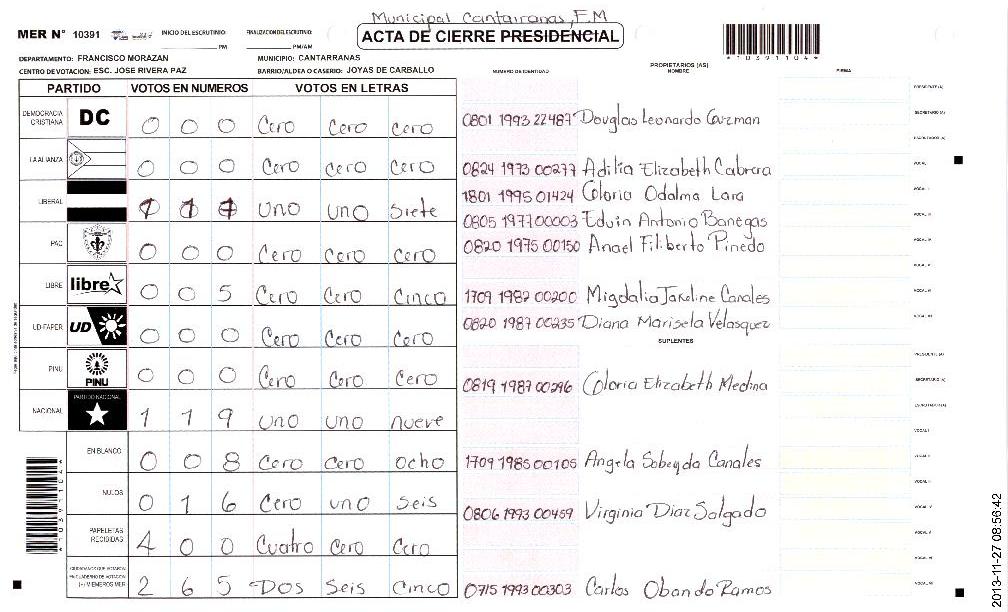 Municipal Cantarranas, F.M
MER N° 10391 INICIO DEL ESCRUTINIO: PM FINALIZACION DEL ESCRUTINIO: PM/AM
ACTA DE CIERRE PRESIDENCIAL
*10391104*
DEPARTAMENTO: FRANCISCO MORAZAN MUNICIPIO: CANTARRANAS
CENTRO DE VOTACION: ESC. JOSE RIVERA PAZ BARRIO/ALDEA O CASERIO: JOYAS DE CARBALLO
NUMERO DE IDENTIDAD PROPIETARIOS (AS) NOMBRE FIRMA
PARTIDO VOTOS EN NUMEROS VOTOS EN LETRAS
DEMOCRACIA CRISTIANA DC 0 0 0 Cero Cero Cero
LA ALIANZA 0 0 0 Cero Cero Cero
LIBERAL 1 1 7 Uno Uno Siete
PAC 0 0 0 Cero Cero Cero
LIBRE libre 0 0 5 Cero Cero Cinco
UD-FAPER UD 0 0 0 Cero Cero Cero
PINU PINU 0 0 0 Cero Cero Cero
NACIONAL PARTIDO NACIONAL 1 1 9 uno uno nueve
EN BLANCO 0 0 8 Cero Cero Ocho
NULOS 0 1 6 Cero uno Seis
PAPELETAS RECIBIDAS 4 0 0 Cuatro Cero Cero
CIUDADANOS QUE VOTARON 2 6 5 Dos Seis Cinco
0801 1993 22487 Douglas Leonardo Guzman
0824 1973 00277 Adilia Elizabeth Cabrera
1801 1995 01424 Gloria Odalma Lara
0805 1977 00003 Edwin Antonio Banegas
0820 1975 00150 Anael Filiberto Pinedo
1709 1982 00200 Migdalia Jakeline Canales
0820 1987 00235 Diana Marisela Velasquez
SUPLENTES
0819 1987 00296 Gloria Elizabeth Medina
1709 1985 00105 Angela Sobeyda Canales
0806 1993 00459 Virginia Diaz Salgado
0715 1993 00303 Carlos Obando Ramos
PRESIDENTE (A)
SECRETARIO (A)
ESCRUTADOR (A)
VOCAL
VOCAL I
PRESIDENTE (A)
SECRETARIO (A)
ESCRUTADOR (A)
VOCAL I
*10391104*
2013-11-27 08:56:42